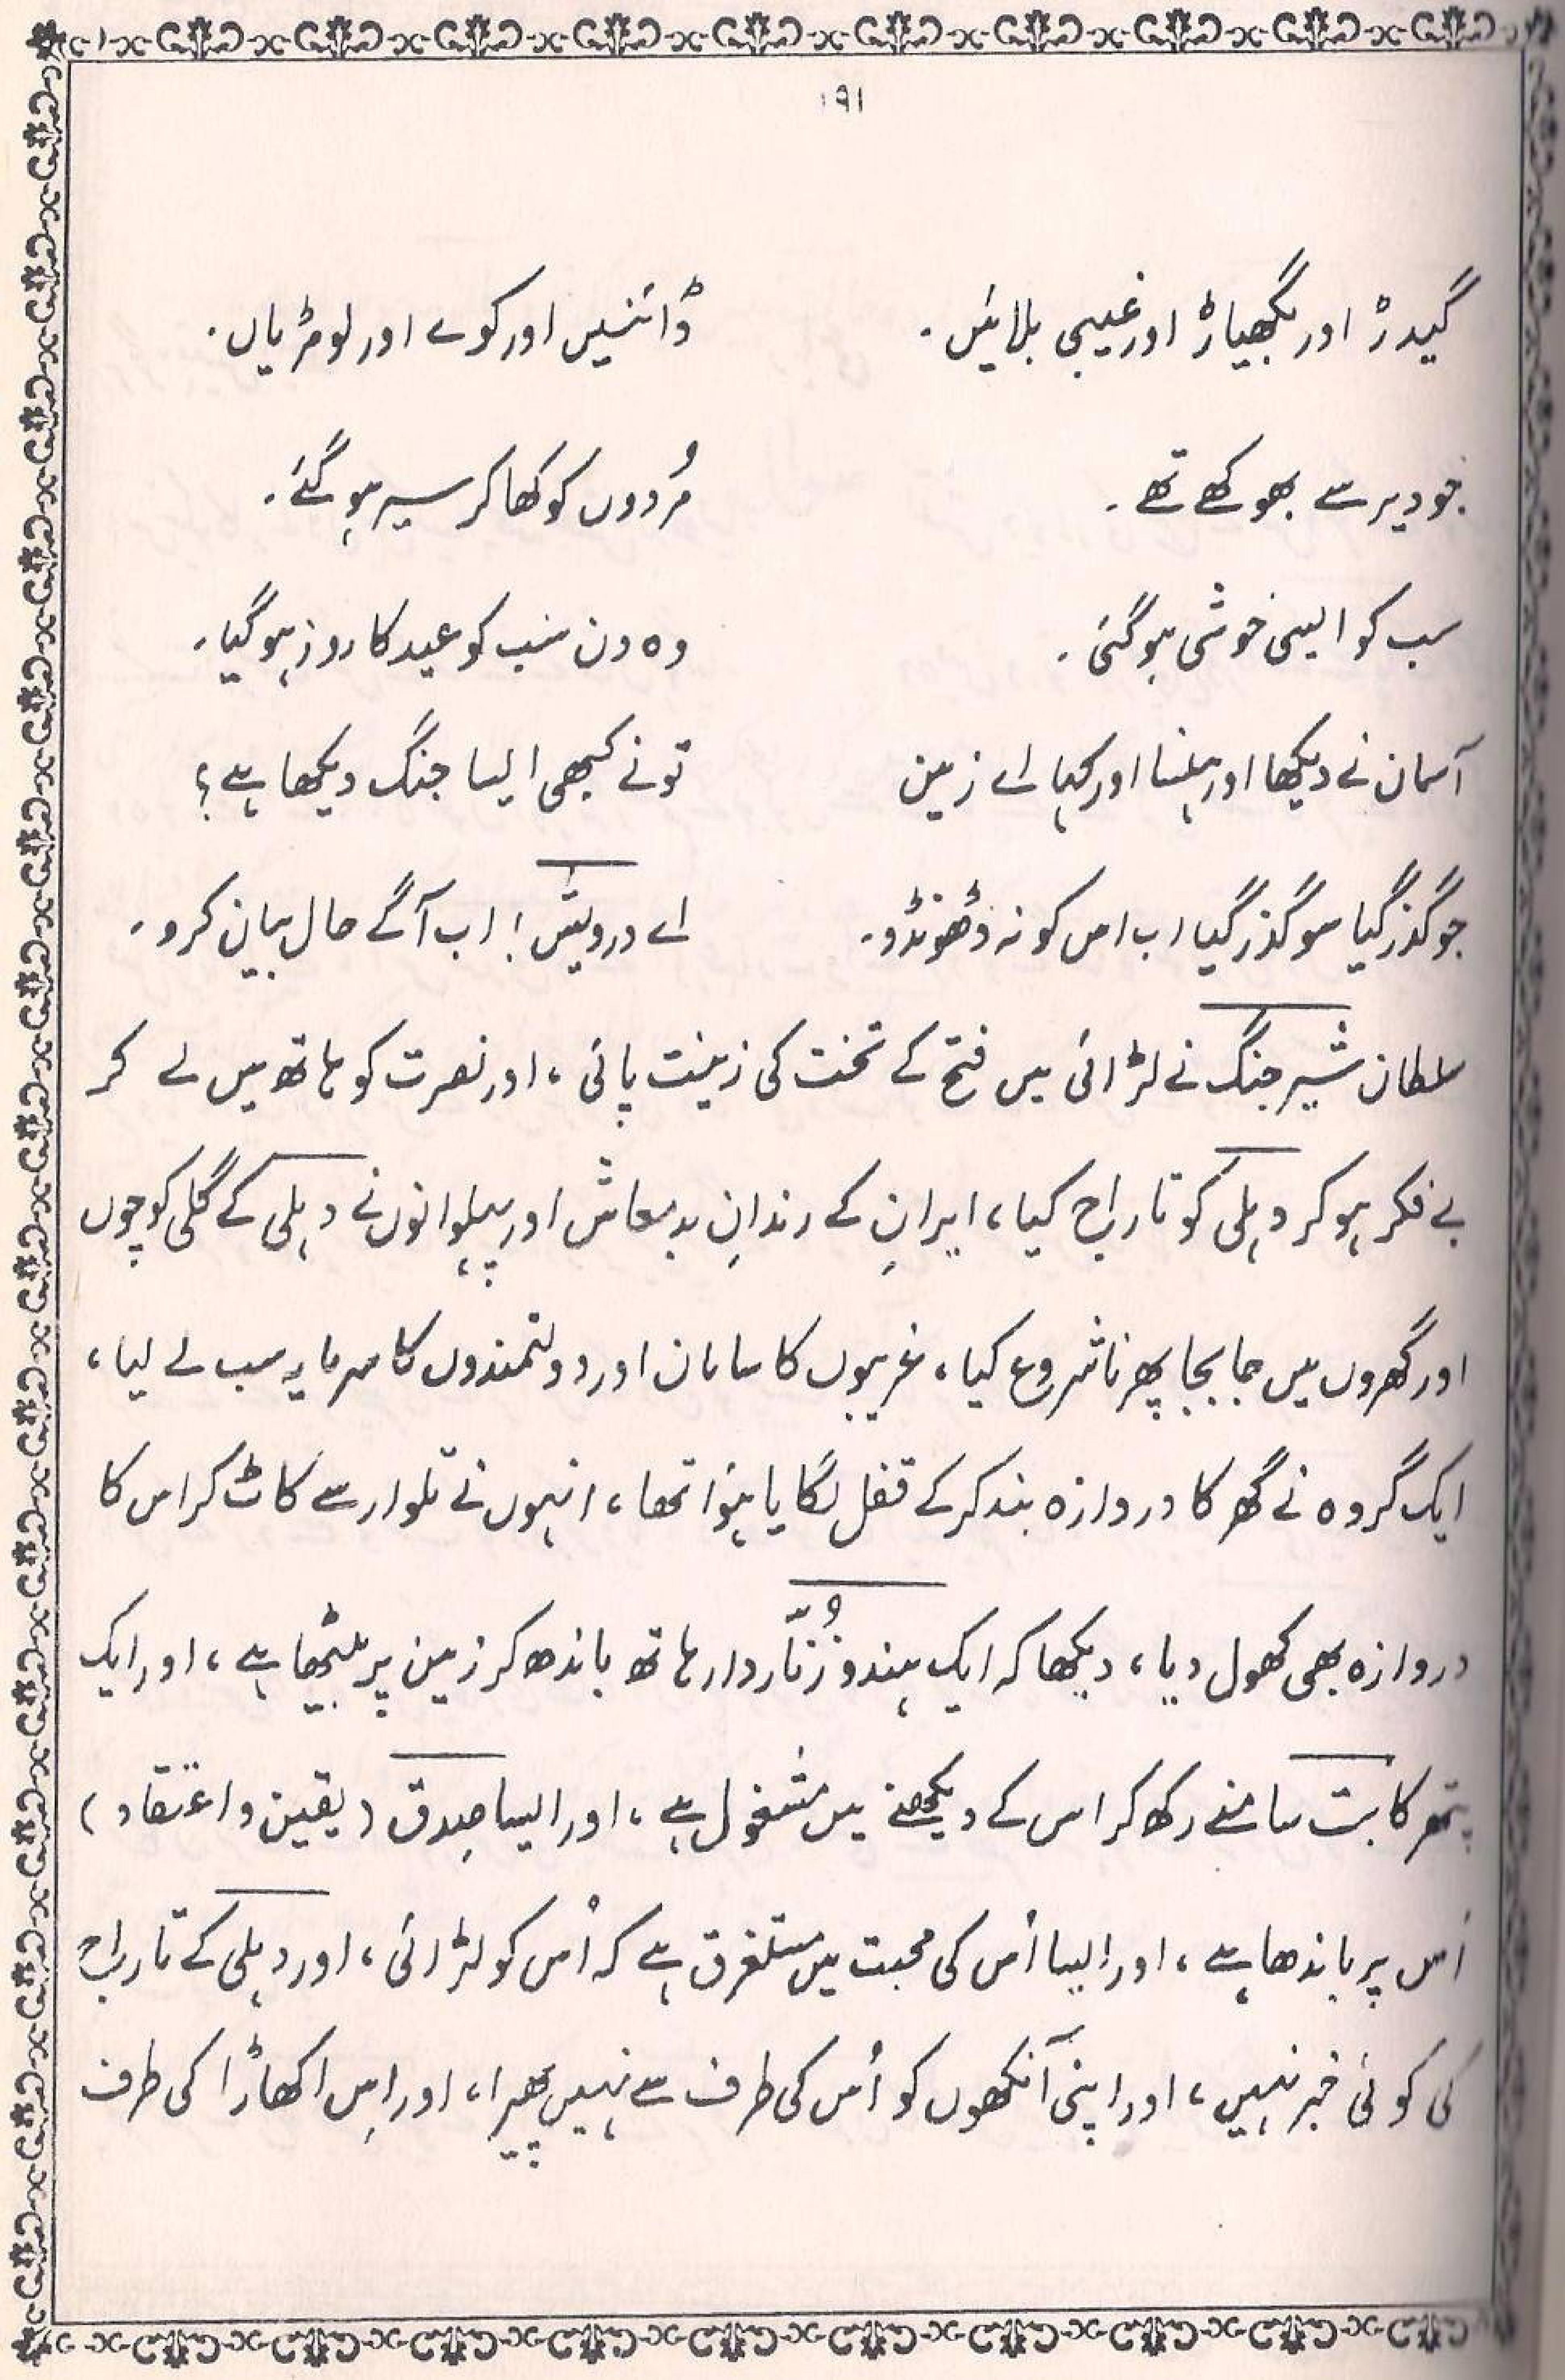 ۱۹۱
گیدڑ اور بگھیاڑ اور غیبی بلائیں۔ ڈائنیں اور کوے اور لومڑیاں۔
جو دیر سے بھوکھے تھے۔ مُردوں کو کھا کر سیر ہو گئے۔
سب کو ایسی خوشی ہو گئی۔ وہ دن سب کو عید کا روز ہو گیا۔
آسمان نے دیکھا اور ہنسا اور کہا اے زمین تو نے کبھی ایسا جنگ دیکھا ہے؟
جو گذر گیا سو گذر گیا اب اس کو نہ ڈھونڈو۔ اے درویش! اب آگے حال بیان کرو۔
سلطان شیر جنگ نے لڑائی میں فتح کے تخت کی زینت پائی، اور نصرت کو ہاتھ میں لے کر
بے فکر ہو کر دہلی کو تاراج کیا، ایران کے رندانِ بدمعاش اور پہلوانوں نے دہلی کے گلی کوچوں
اور گھروں میں جابجا پھرنا شروع کیا، غریبوں کا سامان اور دولتمندوں کا سرمایہ سب لے لیا،
ایک گروہ نے گھر کا دروازہ بند کر کے قفل لگایا ہؤا تھا، انہوں نے تلوار سے کاٹ کر اس کا
دروازہ بھی کھول دیا، دیکھا کہ ایک ہندو زُنّار دار ہاتھ باندھ کر زمین پر بیٹھا ہے، اور ایک
پتھر کا بت سامنے رکھ کر اس کے دیکھنے میں مشغول ہے، اور ایسا صِدق (یقین و اعتقاد)
اُس پر باندھا ہے، اور ایسا اُس کی محبت میں مستغرق ہے کہ اُس کو لڑائی، اور دہلی کے تاراج
کی کوئی خبر نہیں، اور اپنی آنکھوں کو اُس کی طرف سے نہیں پھیرا، اور اِس اکھاڑا کی طرف